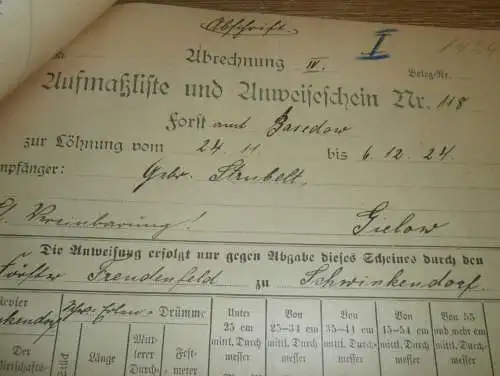 Abschrift.
I
1924
Abrechnung IV.
Beleg-Nr.
Aufmaßliste und Anweiseschein Nr. 118
Forst amt Basedow
zur Löhnung vom 24. 11 bis 6. 12. 24.
mpfänger: Gebr. Strubelt,
Vereinbarung! Gielow
Die Anweisung erfolgt nur gegen Abgabe dieses Scheines durch den
Förster Freudenfeld zu Schwinkendorf
evier
nkendorf
Der
Wirtschafts-
Stück
Drümme
Länge
Mitt-
lerer
Durch-
messer
Fest-
meter
Unter
25 cm
mittl. Durch-
messer
Von
25—34 cm
mittl. Durch
messer
Von
35—44 cm
mittl. Durch-
messer
Von
45—54 cm
mittl. Durch
messer
Von 55
und mehr cm
mittl. Durch
messer